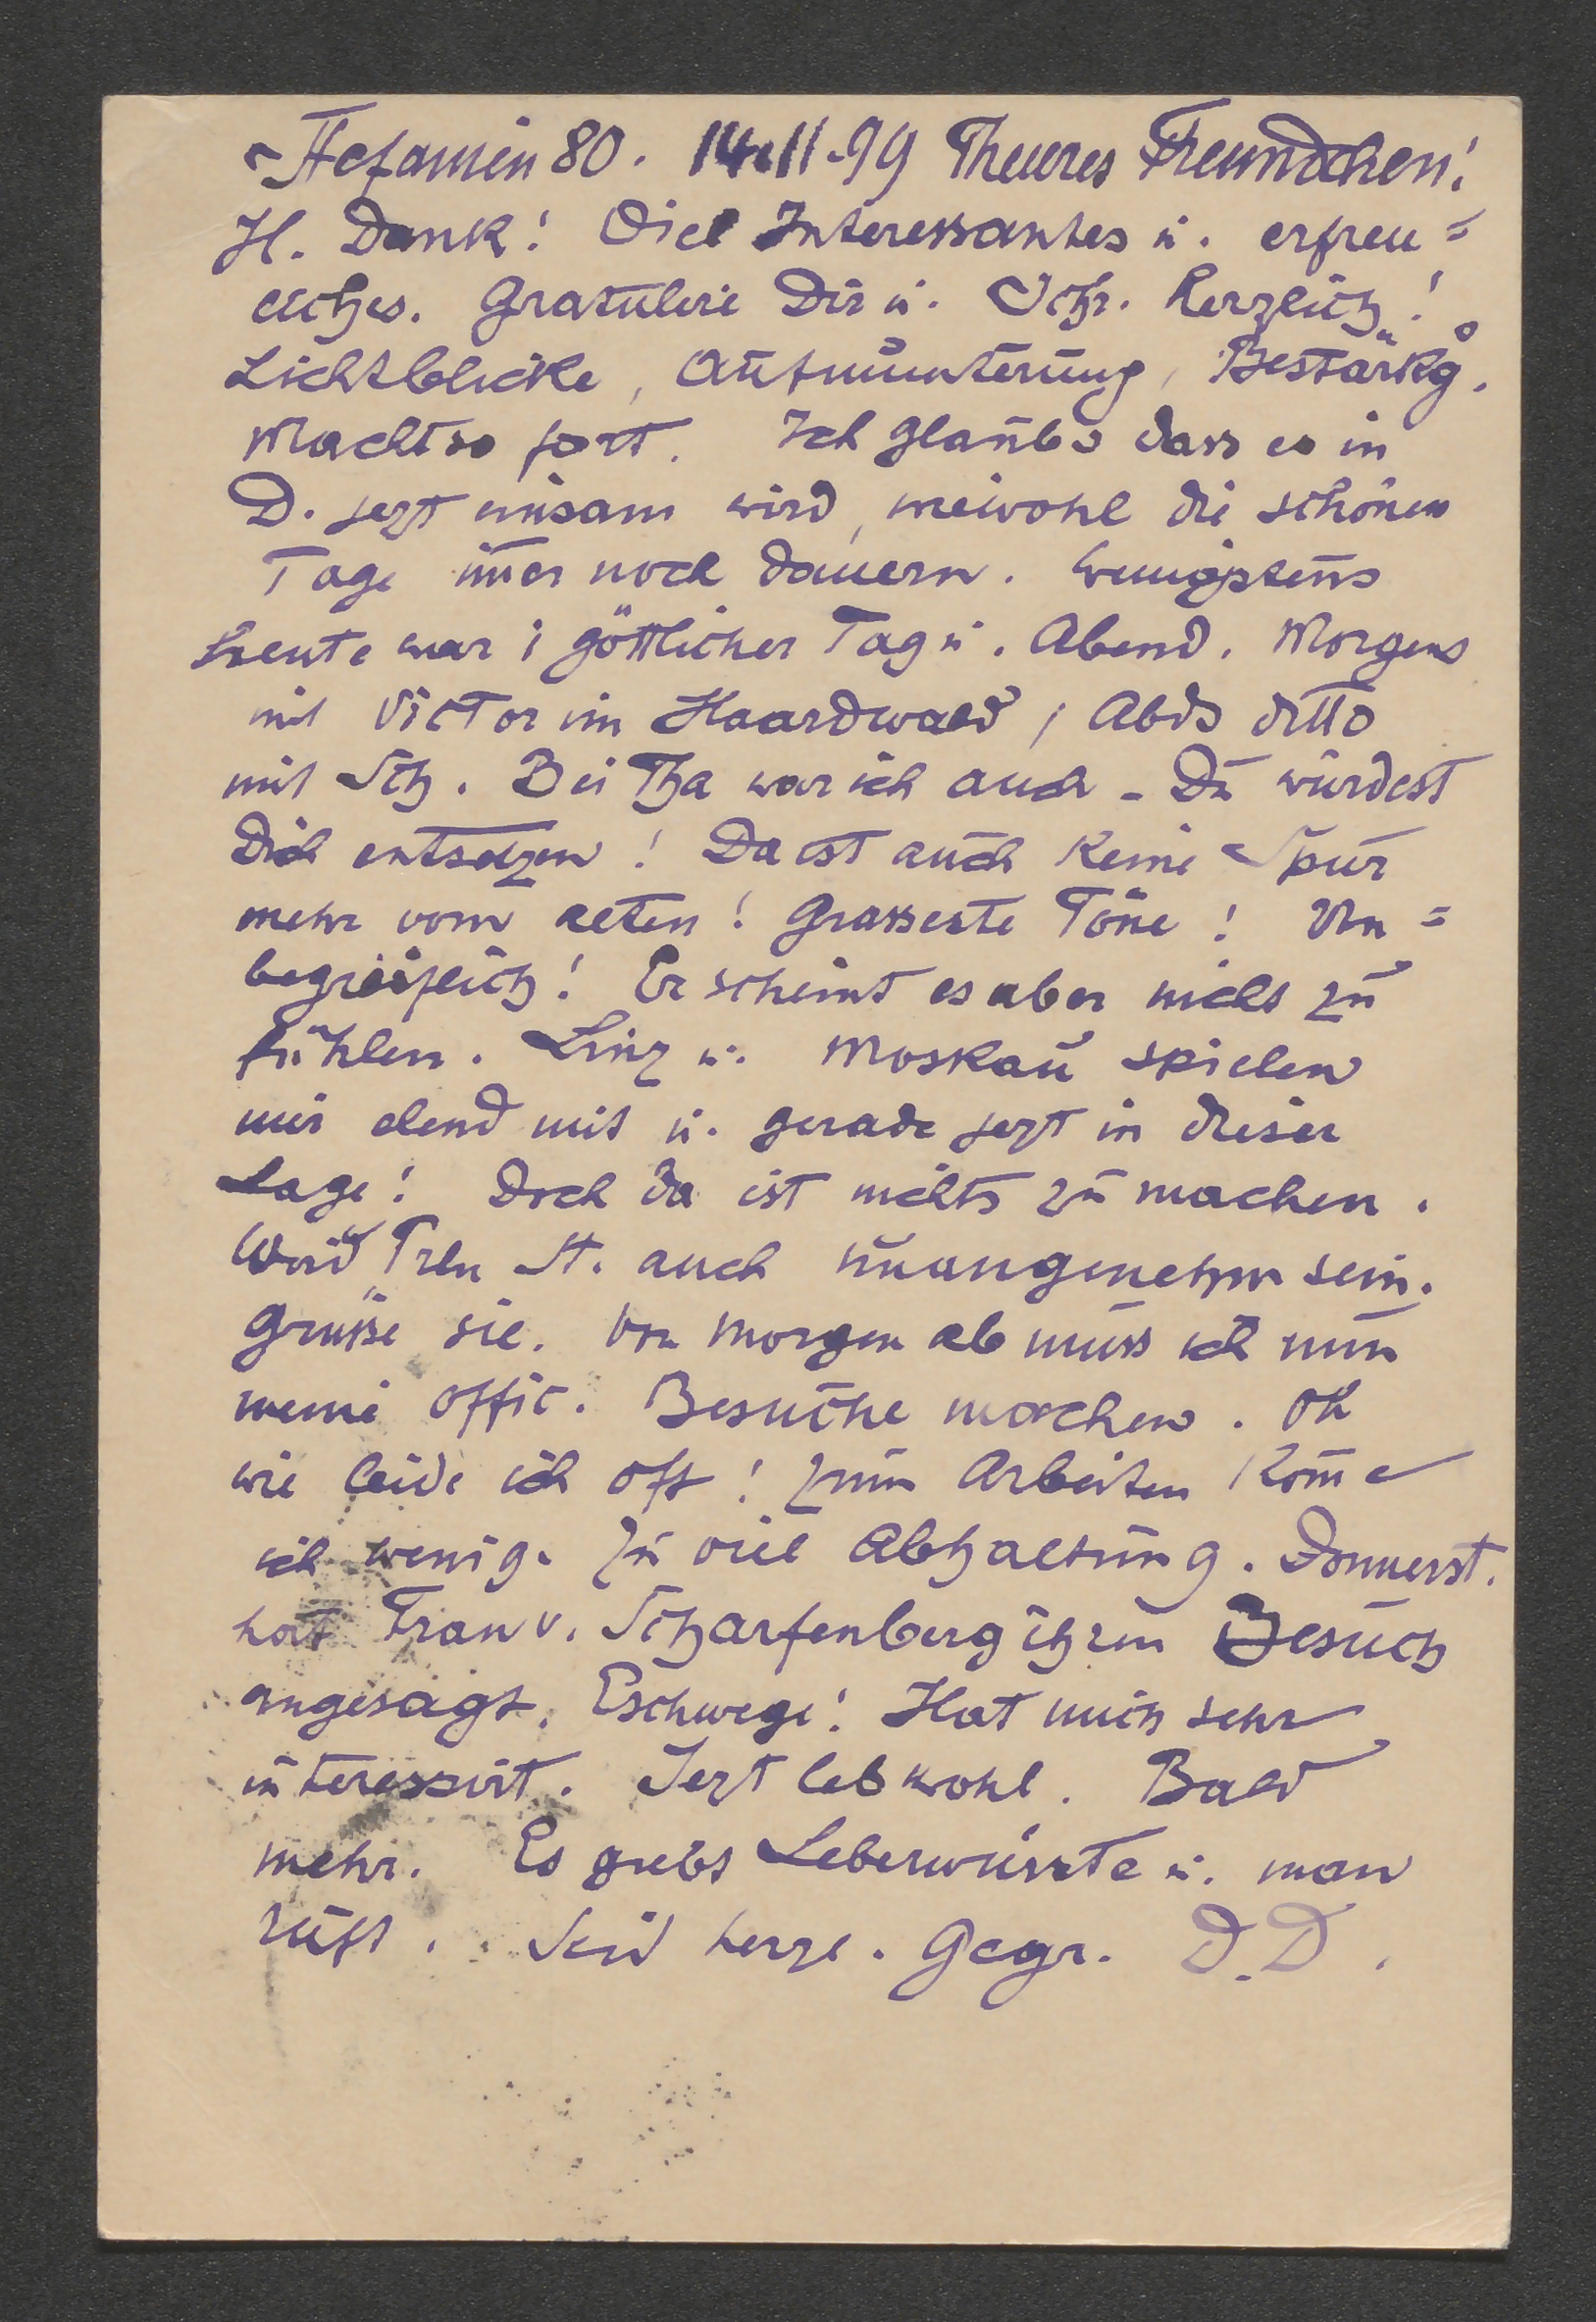 Stefanien 80. 14.11.99 Theures Freundchen!
H. Dank! Viel Interessantes u. erfreu=
liches. Gratulire Dir u. Schr. herzlich!
Lichtblicke, Aufmunterung, Bestärkg.
Macht so fort. Ich glaube dass es in
D. jezt einsam wird, wiewohl die schönen
Tage im̄er noch dauern. Wenigstens
heute war 1 göttlicher Tag u. Abend. Morgens
mit Victor im Haardwald, Abds ditto
mit Sch. Bei Tha war ich auch – Du würdest
Dich entsetzen! Da ist auch keine Spur
mehr vom alten! Grasseste Töne! Un=
begreiflich! Er scheint es aber nicht zu
fühlen. Linz u. Moskau spielen
mir elend mit u. gerade jezt in dieser
Lage! Doch da ist nichts zu machen.
Wird Frln St. auch unangenehm sein.
Grüsse sie. Von morgen ab muss ich nun
meine offic. Besuche machen. Oh
wie leide ich oft! Zum Arbeiten kom̄e
ich wenig. Zu viel Abhaltung. Donnerst.
hat Frau v. Scharfenberg ihren Besuch
angesagt. Eschwege! Hat mich sehr
interessirt. Jezt leb wohl. Bald
mehr. Es giebt Leberwürste u. man
ruft. Seid herzl. Gegr. D. D.